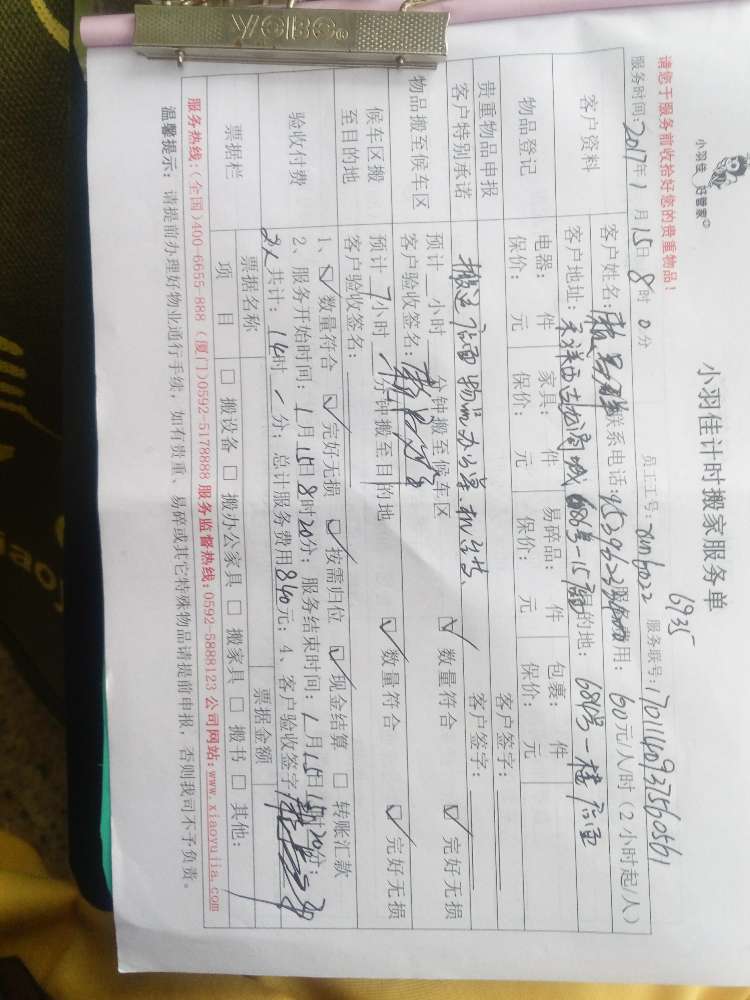 YCBC
小羽佳 好管家
小羽佳计时搬家服务单
6935
请您于服务前收拾好您的贵重物品！ 员工工号：xm6022 服务联号：
服务时间：2017年1月15日8时0分 60元/人/时（2小时起/人）
客户资料 客户姓名： 联系电话： 费用：
客户地址： 目的地：
物品登记 电器： 件 家具： 件 易碎品： 件 包裹： 件
保价： 元 保价： 元 保价： 元 保价： 元
贵重物品申报 客户签字：
客户特别承诺 客户签字：
物品搬至候车区 预计 小时 分钟搬至候车区 ☑ 数量符合 ☑ 完好无损
客户验收签名：
候车区搬至目的地 预计 7小时 分钟搬至目的地 ☑ 数量符合 ☑ 完好无损
客户验收签名：
验收付费 1、☑ 数量符合 ☑ 完好无损 ☑ 按需归位 ☑ 现金结算 □ 转账汇款
2、服务开始时间：1月15日8时20分；服务结束时间：1月15日 20分；
2人共计：14时 分；总计服务费用840元；4、客户验收签字
票据栏 票据名称 票据金额
项目 □ 搬设备 □ 搬办公家具 □ 搬家具 □ 搬书 □ 其他：
服务热线：（全国）400-6655-888（厦门）0592-5178888 服务监督热线：0592-5888123 公司网站：www.xiaoyujia.com
温馨提示：请提前办理好物业通行手续，如有贵重、易碎或其它特殊物品请提前申报，否则我司不予负责。